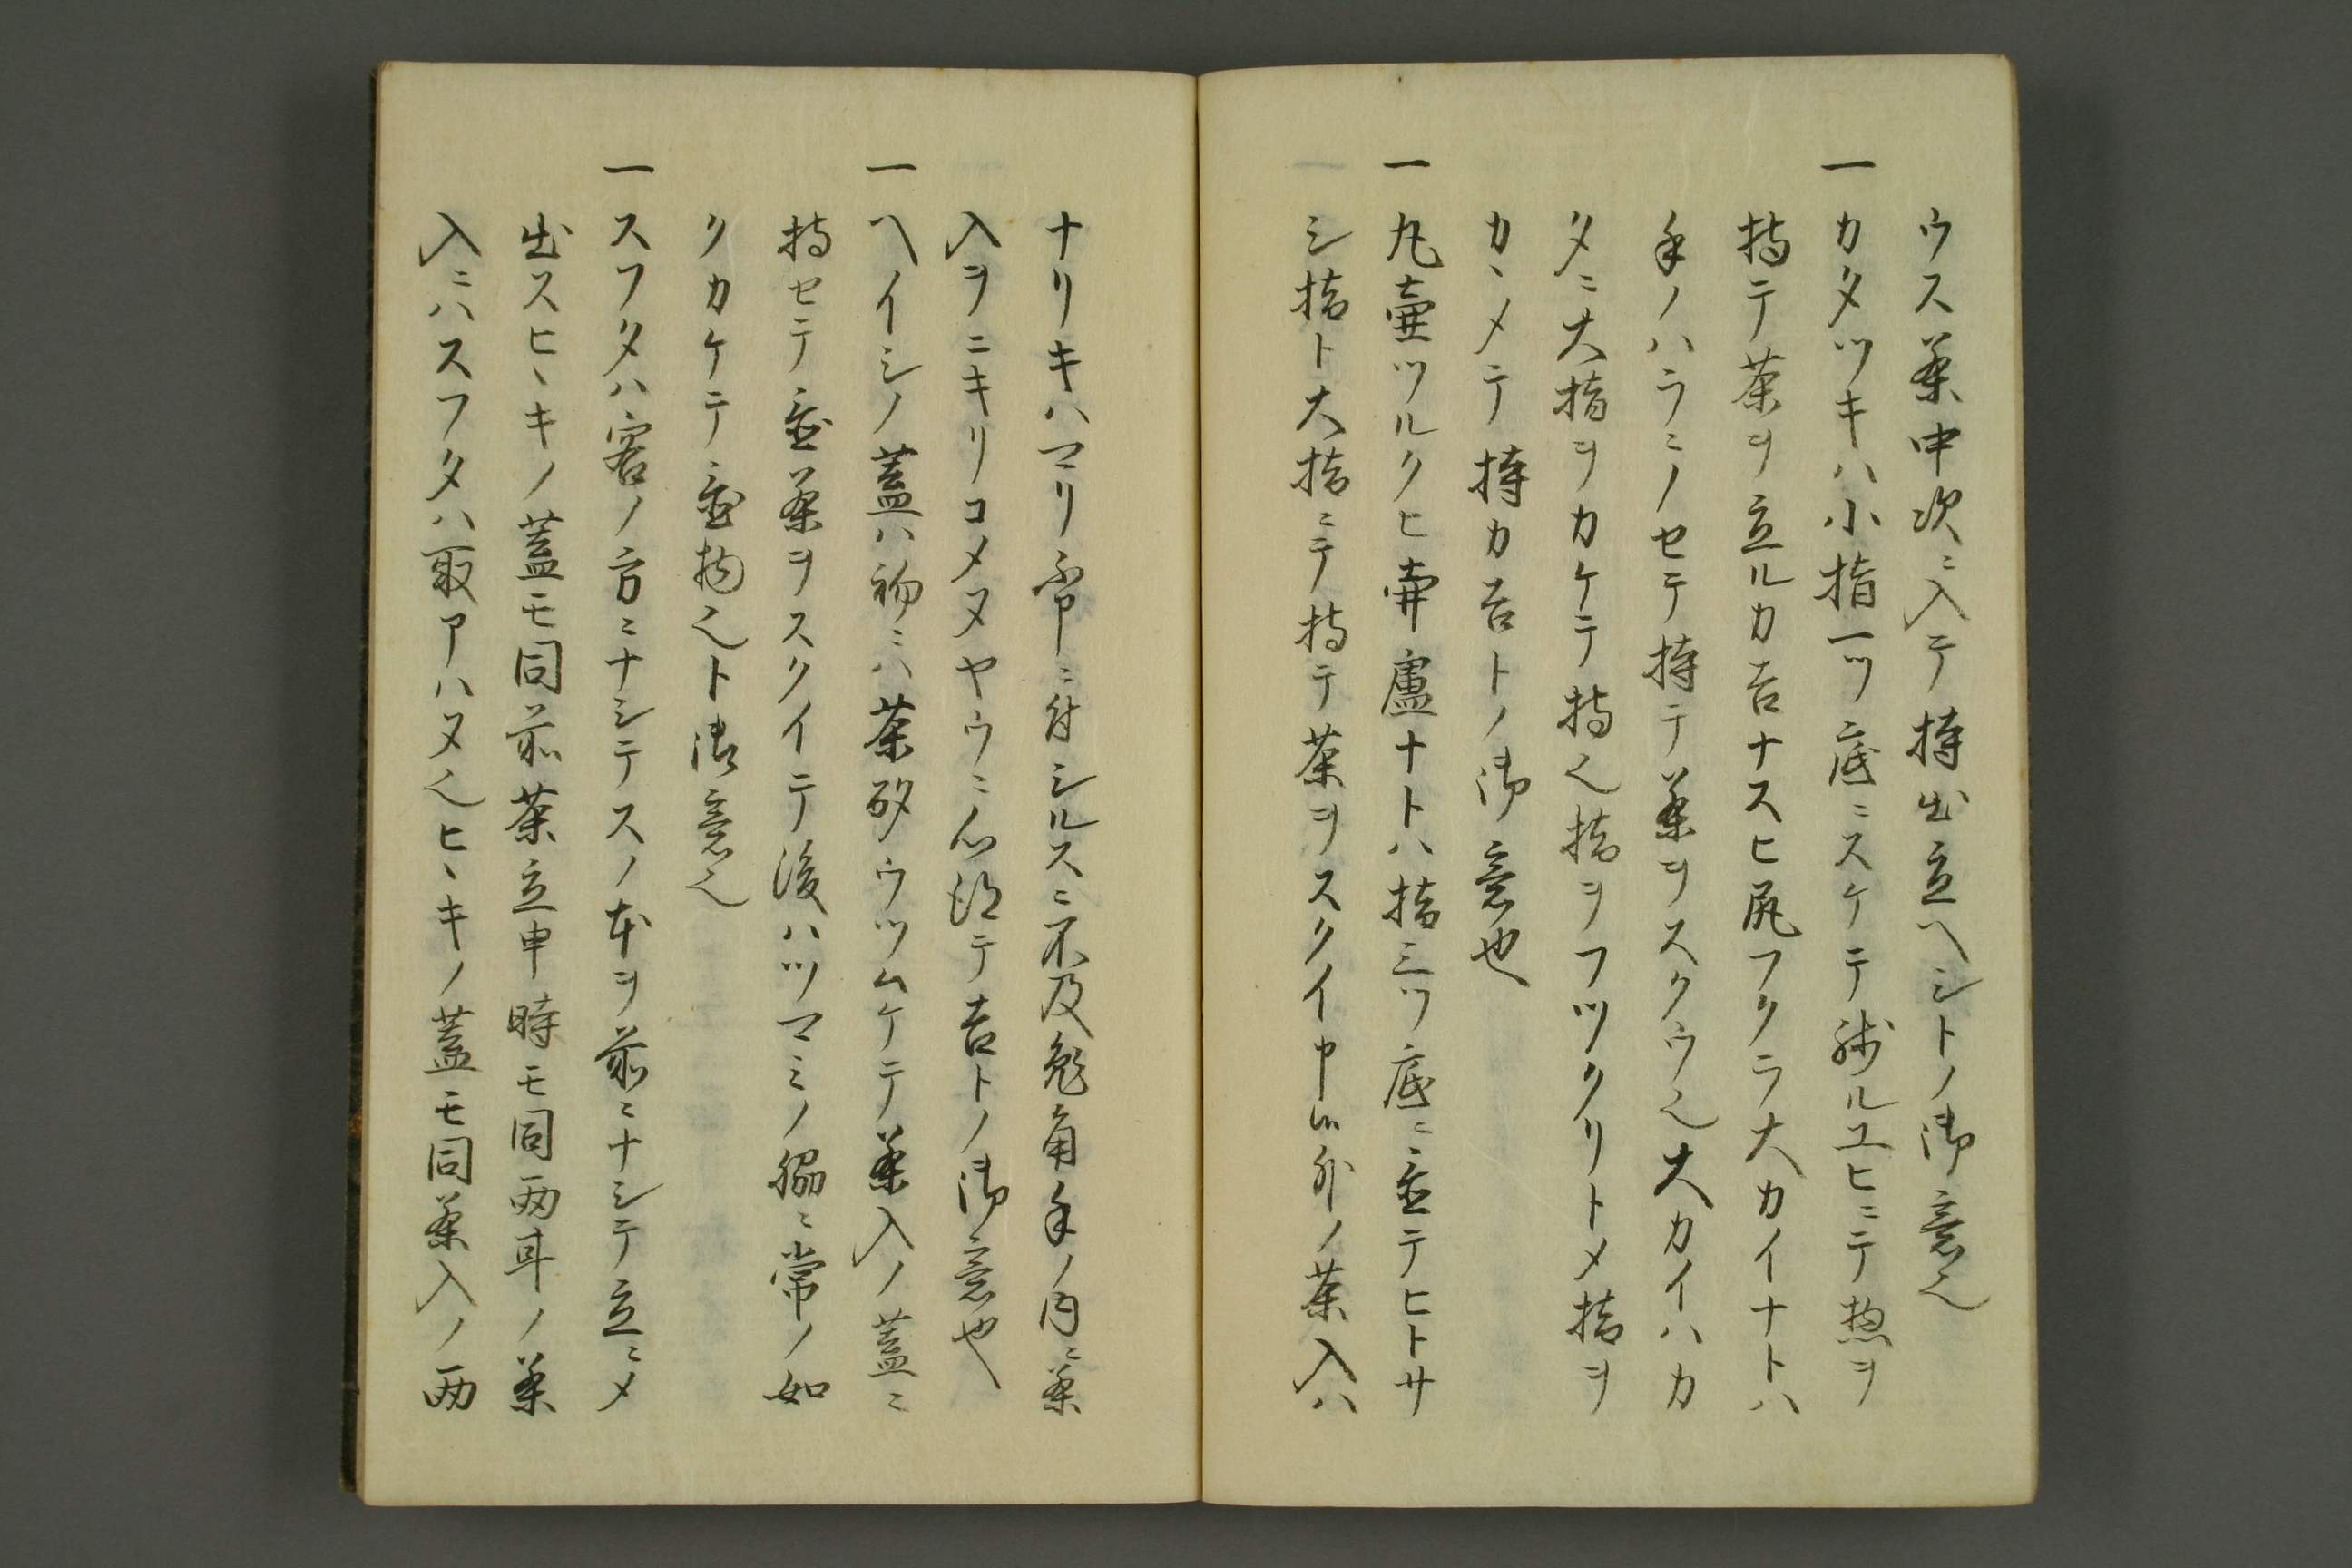 ウス茶中次ニ入テ持出立ヘシトノ御意也
一カタツキハ小指一ツ底ニスケテ残ルユヒニテ惣ヲ
持テ茶ヲ立ルカ吉ナスヒ尻フクラ大カイナトハ
手ノハラニノセテ持テ茶ヲスクウ也大カイハカ
タニ大指ヲカケテ持也指ヲフツクリトメ指ヲ
カヽメテ持カ吉トノ御意也
一丸壷ツルクヒ瓢盧ナトハ指三ツ底ニ立テヒトサ
シ指ト大指ニテ持テ茶ヲスクイ申候外ノ茶入ハ
ナリキハマリ不申ニ付シルスニ不及兎角手ノ内ニ茶
入ヲニキリコメヌヤウニ心得テ吉トノ御意也
一ヘイシノ蓋ハ初ニハ茶杓ウツムケテ茶入ノ蓋ニ
持セテ置茶ヲスクイテ後ハツマミノ脇ニ常ノ如
クカケテ置物也ト御意也
一スフタハ客ノ方ニナシテスノ本ヲ前ニナシテ立ニメ
出スヒヽキノ蓋モ同前茶立申時モ同両耳ノ茶
入ニハスフタハ取アハヌ也ヒヽキノ蓋モ同茶入ノ両